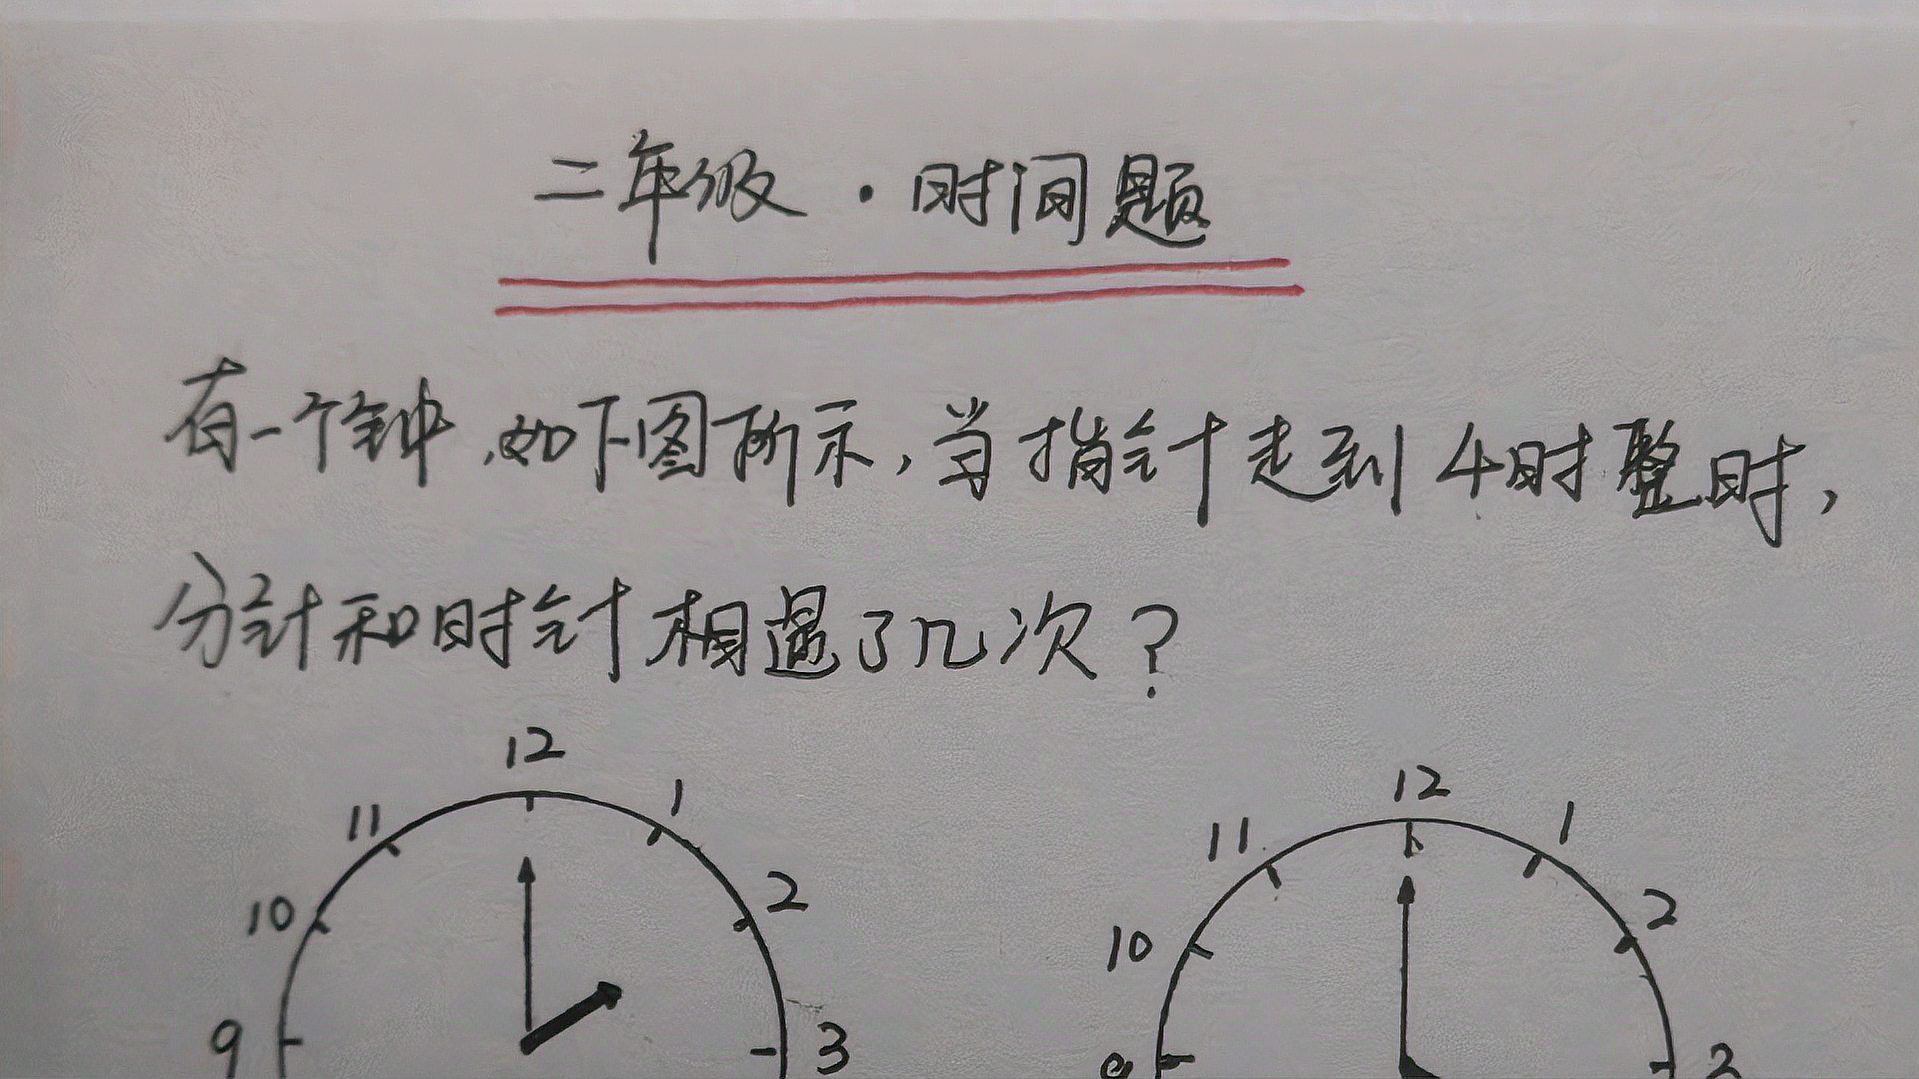 二年级·时间题
有一个钟,如下图所示,当指针走到4时整时,
分针和时针相遇了几次?
12
11
1
10
2
9
3
12
11
1
10
2
9
3